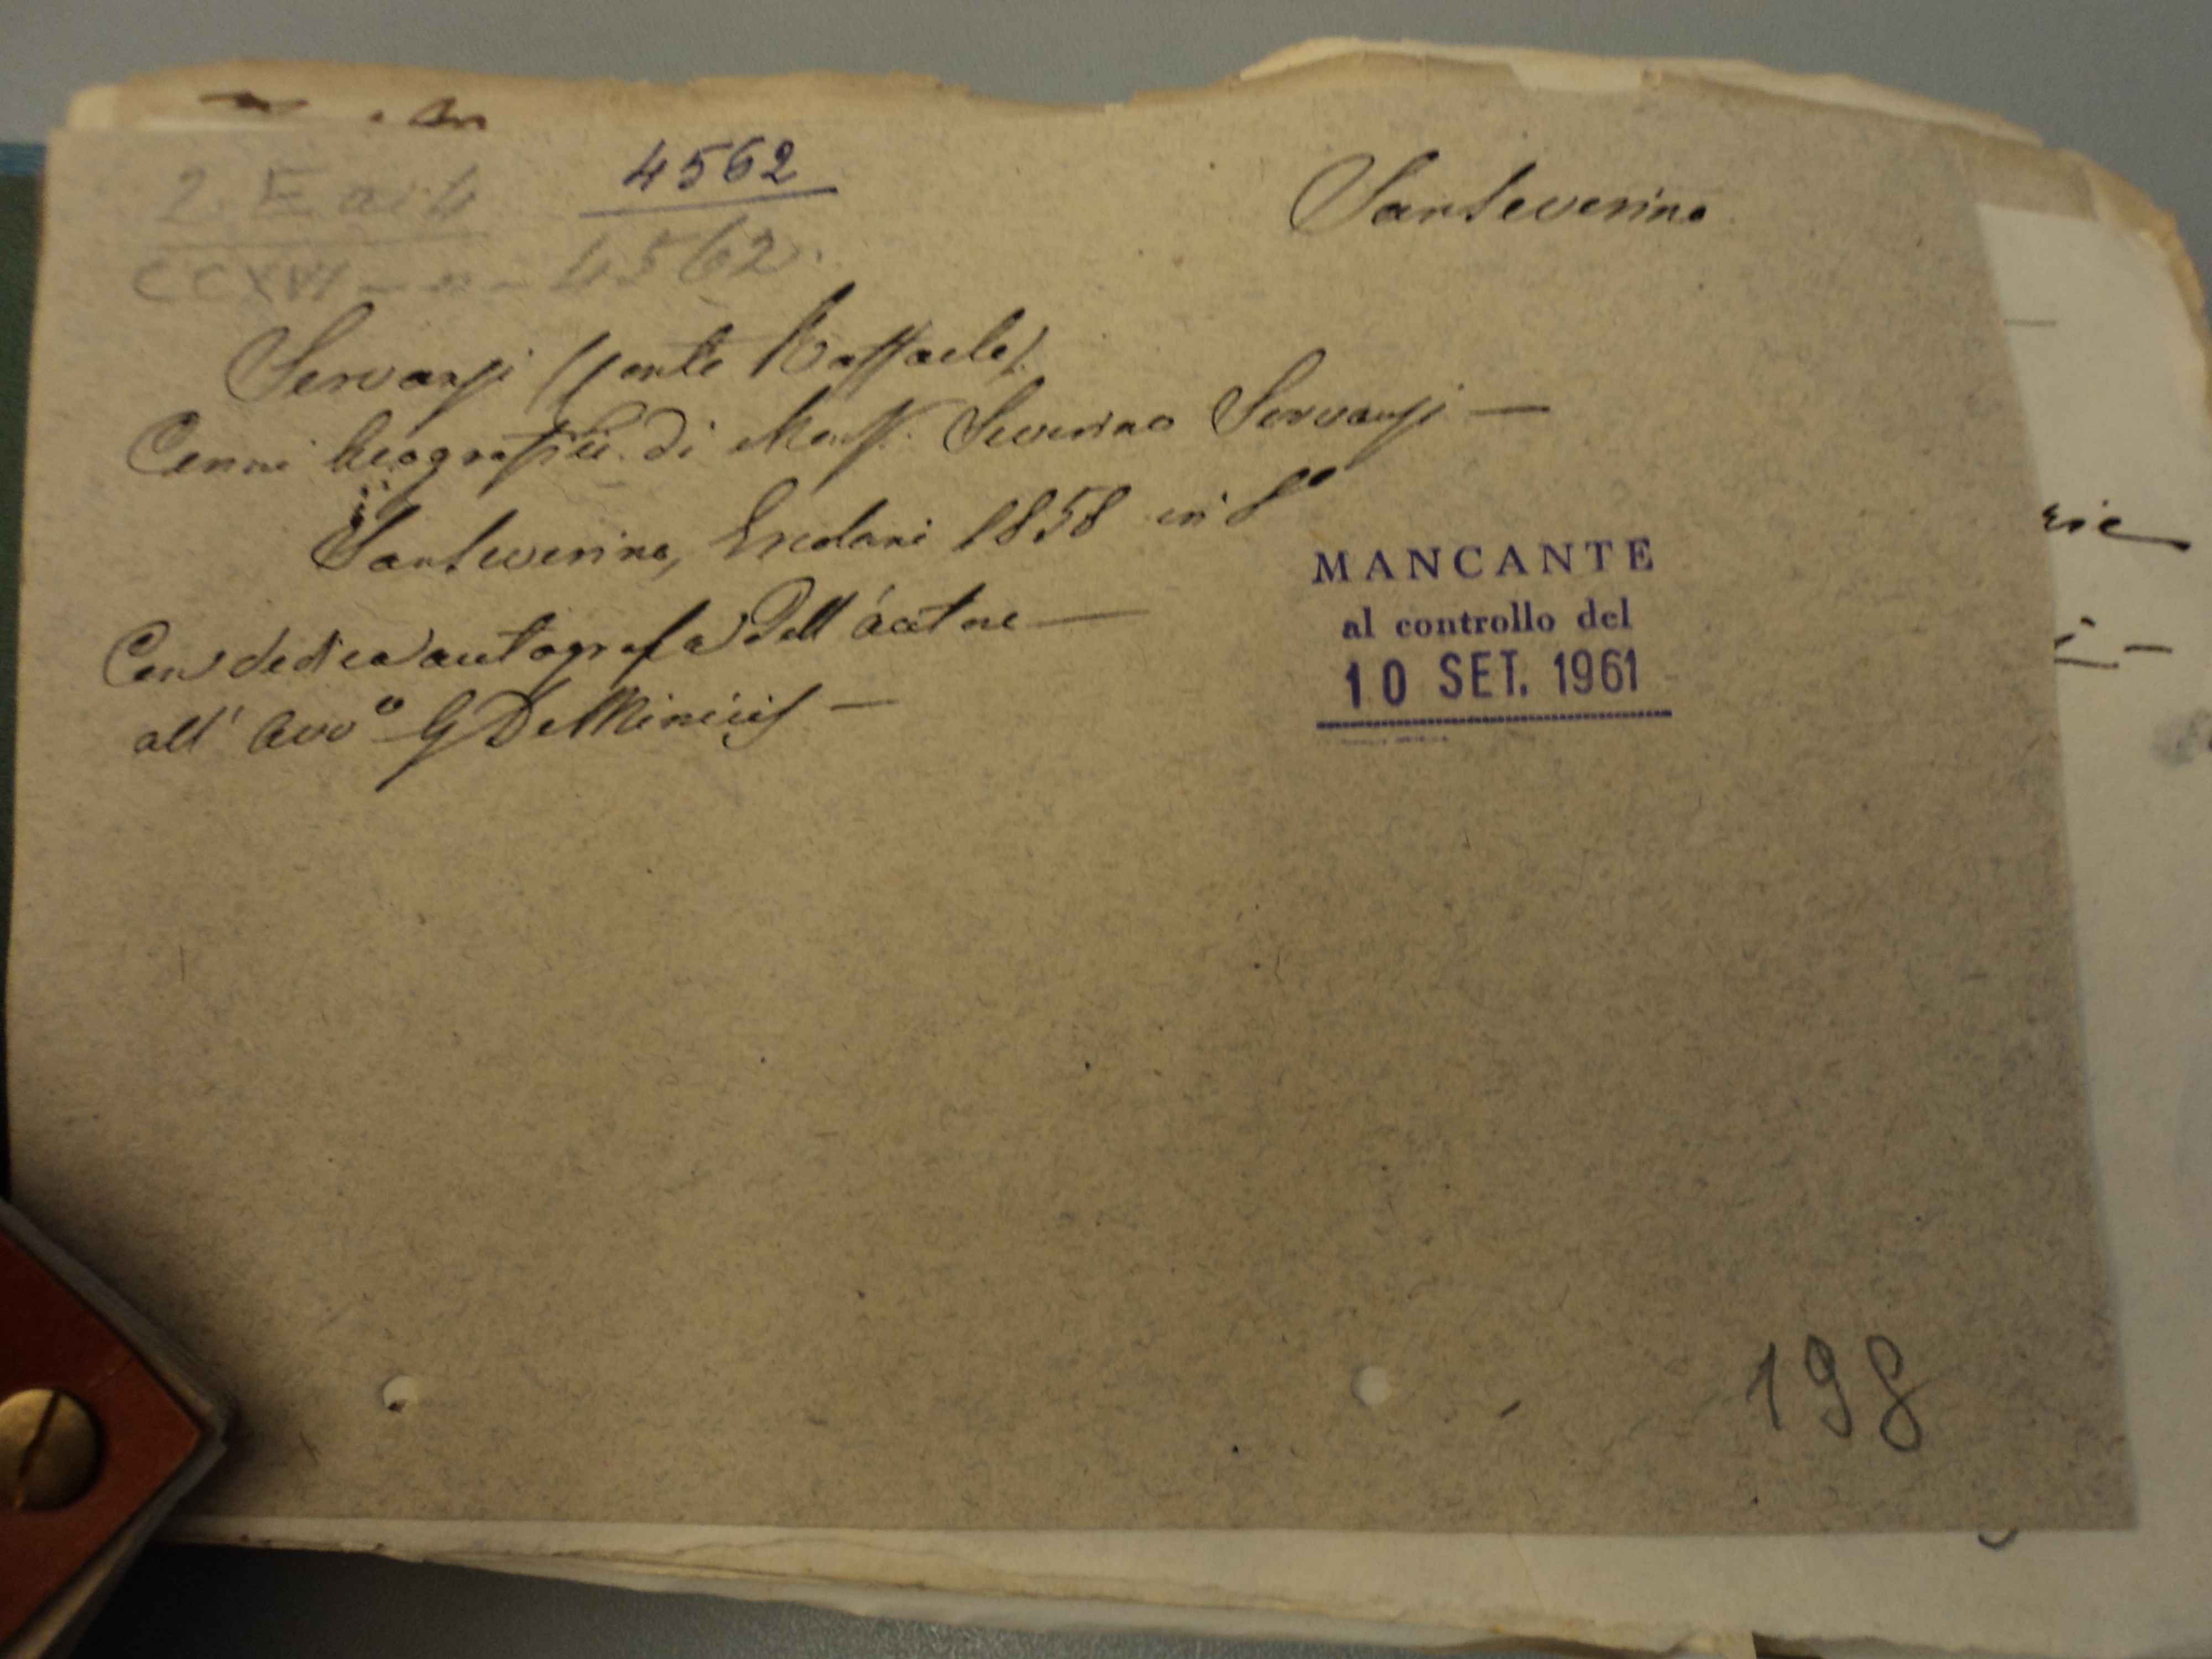 4562
Sanseverino
CCXVI - n - 4562.
Servanzi (Conte Raffaele)
Cenni biografici di Mons. Severino Servanzi —
Sanseverino, Ercolani 1858 in 8°
Con dedica autografa dell'autore —
all' Avv° G De Minicis —
MANCANTE
al controllo del
10 SET. 1961
198